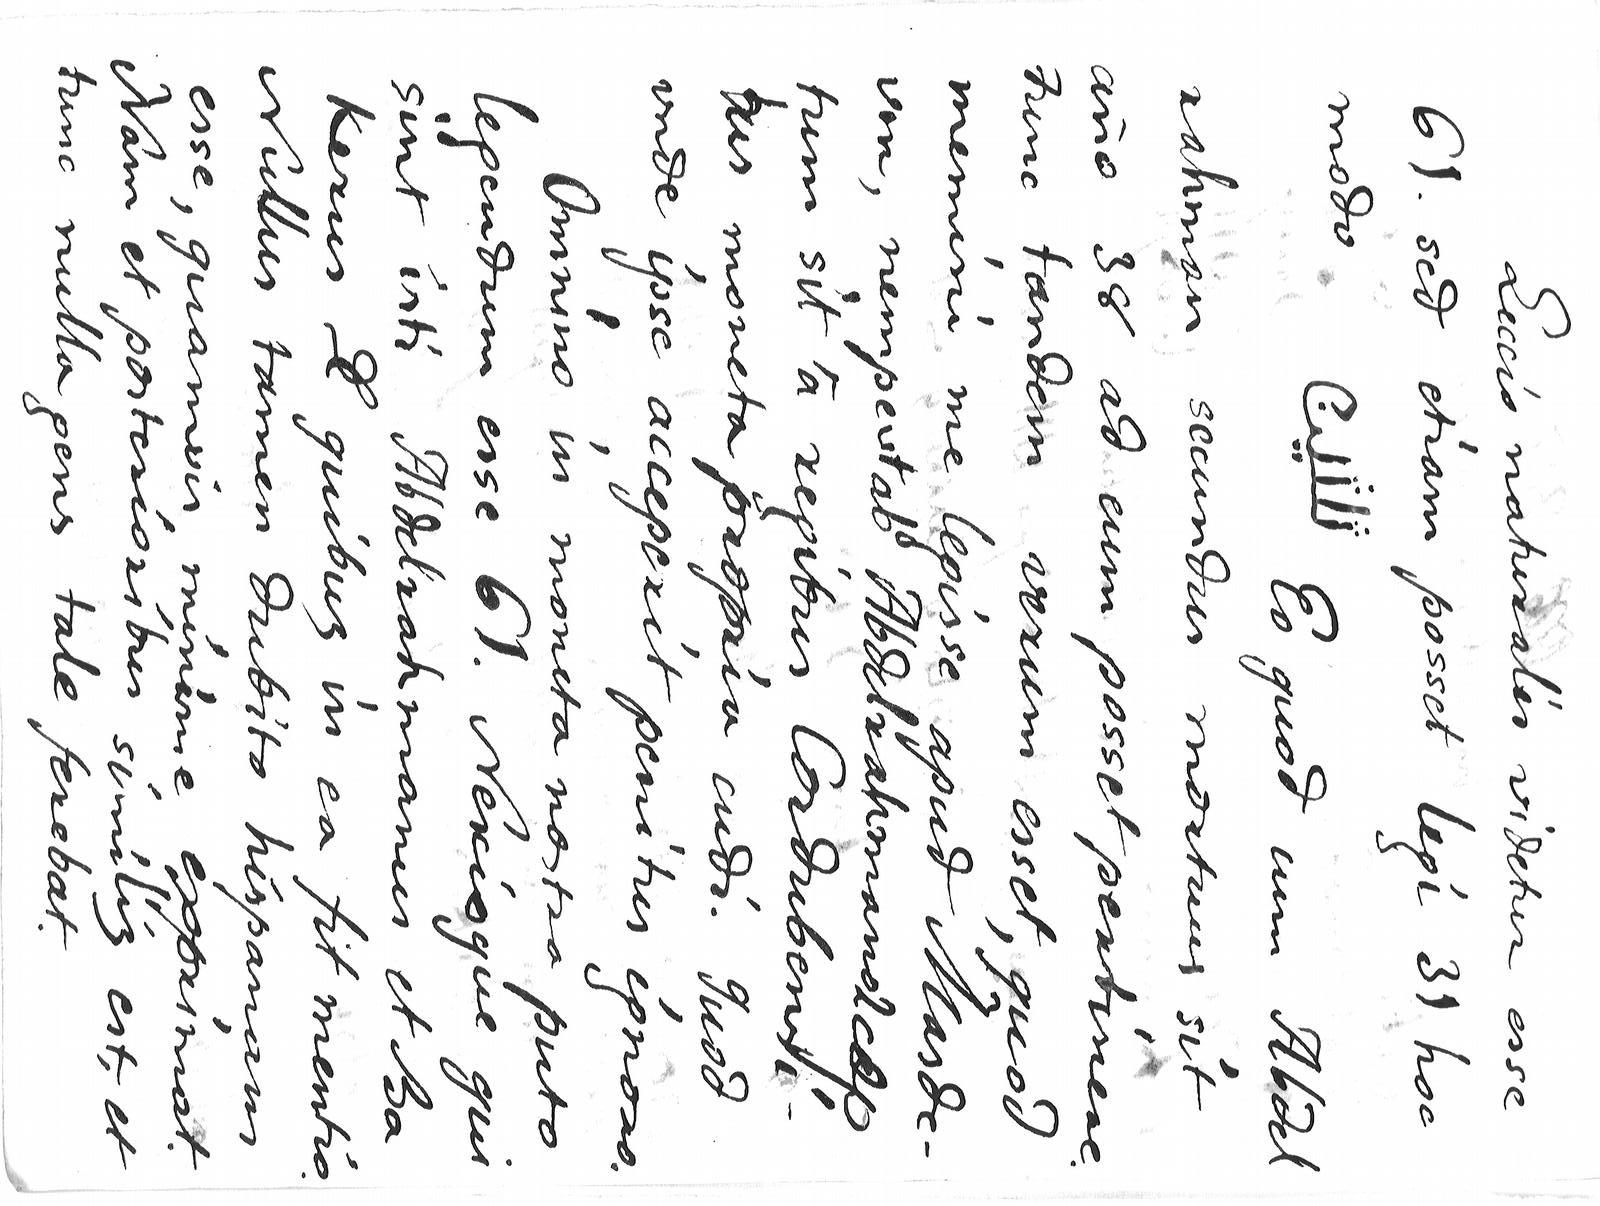 Leccio naturalis videtur esse
61. sed etiam posset legi 31 hoc
modo ثلثين Eo quod cum Abdel
rahman secundus mortuus sit
año 38 ad eum posset pertinere.
tunc tandem verum esset, quod
memini me legisse apud Masde-
vm, nempe ab Abdelrahmano 2
tum sit à regibus Cordubensi-
bus moneta propria cudi. quod
vnde ipse acceperit penitus ignoro.
Omnino in moneta nostra puto
legendum esse 61. Nexioque qui
sint isti Abdelrahmanus et Ba
kerus & quibus in ea fit mentio.
Nullus tamen dubito hispanam
esse, quamvis minime exprimat.
Nam et posterioribus similis est, et
tunc nulla gens tale ferebat.